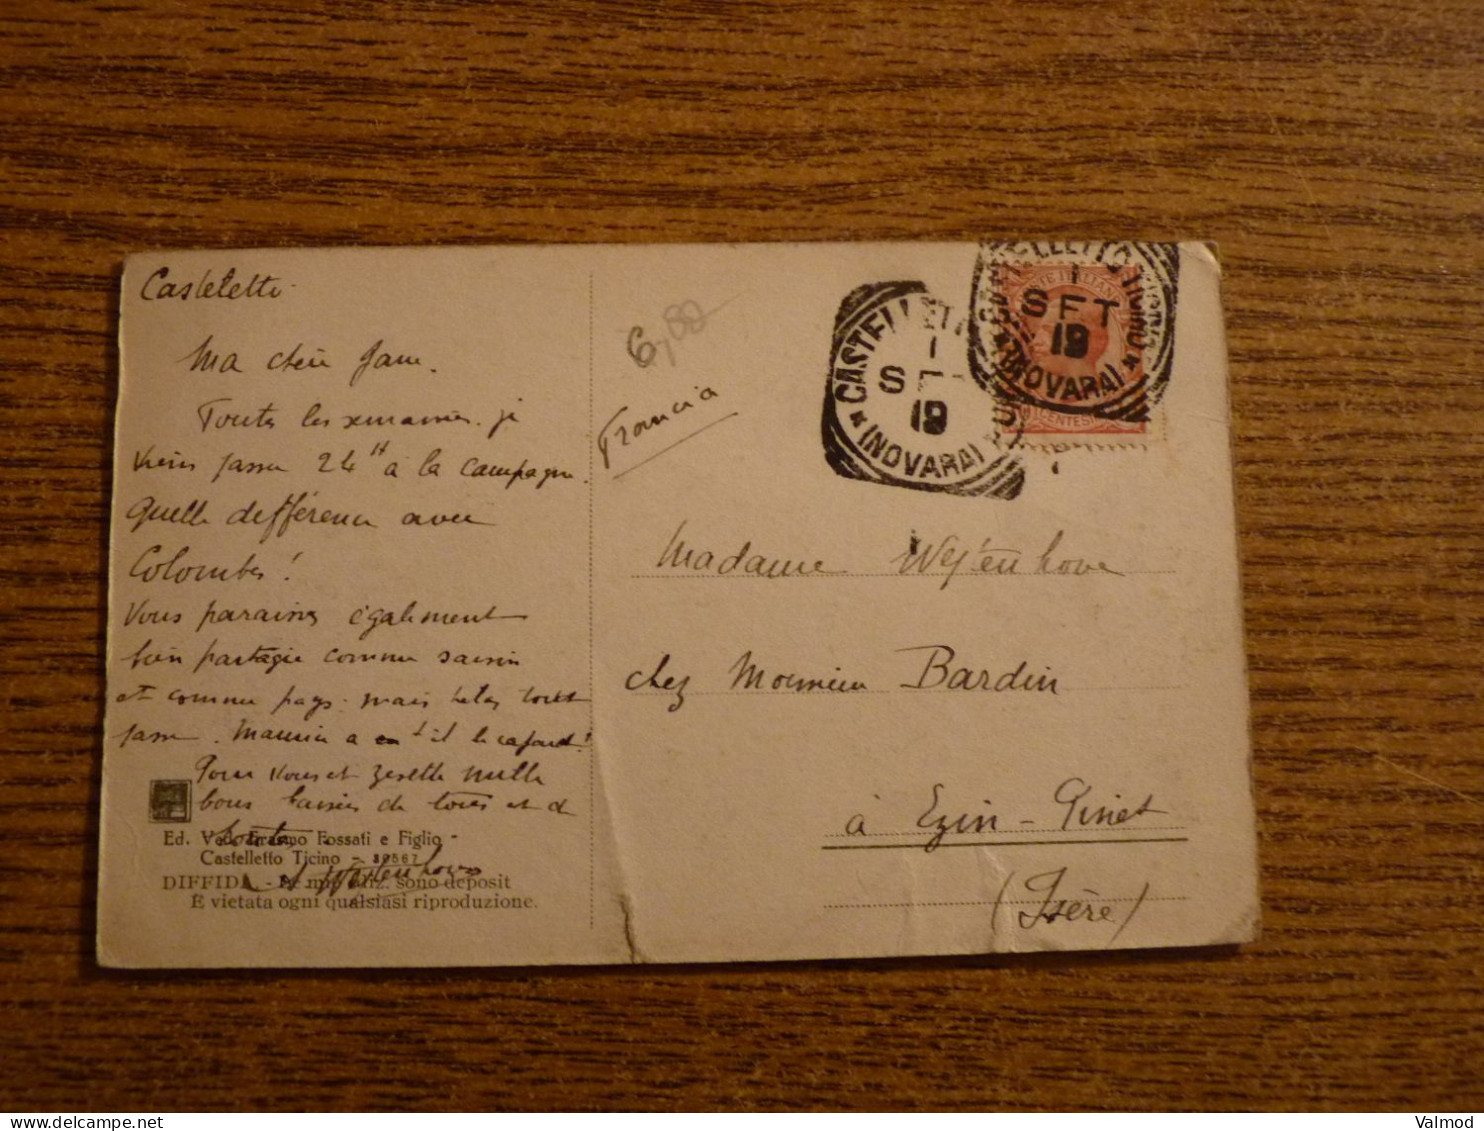 Casteletto
Ma chère Jane.
Toutes les semaines je
viens passer 24 H à la campagne.
Quelle defférence avec
Colombes!
Vous également
bien partagée comme saison
et comme pays. mais helas tout
passe. Maurice a t'il le cafard!
Pour vous et mille
bons baisers de tous et de
Ed. Erasmo Fossati e Figlio -
Castelletto Ticino - 39567
DIFFIDA - sono deposit
E vietata ogni qualsiasi riproduzione.
6,00
Francia
CASTELLETTO TICINO
1
SET
19
(NOVARA)
CASTELLETTO TICINO
1
SET
19
(NOVARA)
CENTESIMI
Madame
chez Monsieur Bardin
à Ezin-Pinet
(Isère)
Valmod